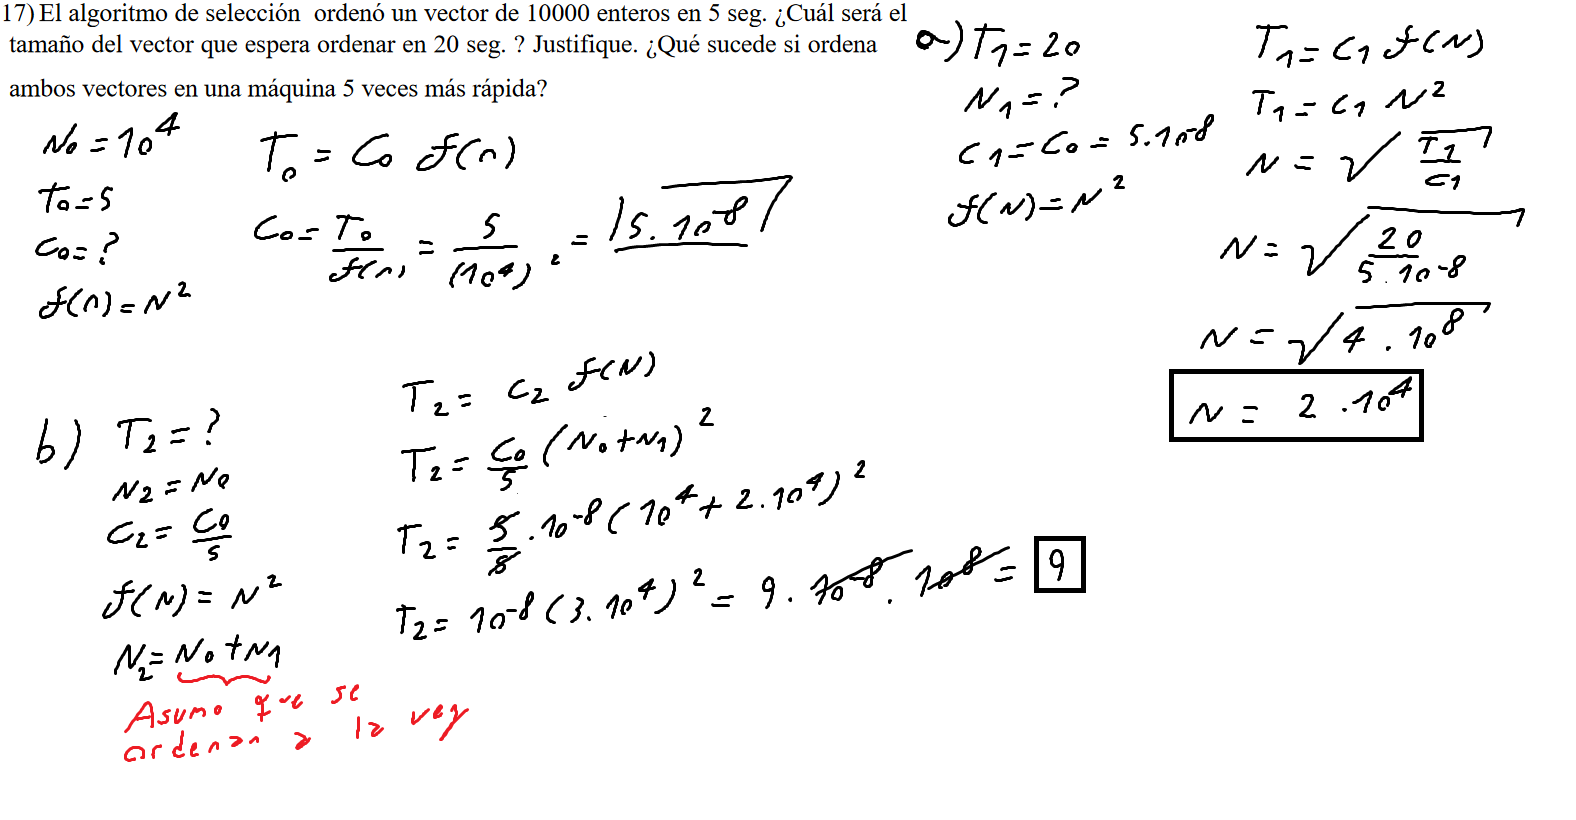 17) El algoritmo de selección ordenó un vector de 10000 enteros en 5 seg. ¿Cuál será el
tamaño del vector que espera ordenar en 20 seg. ? Justifique. ¿Qué sucede si ordena
ambos vectores en una máquina 5 veces más rápida?
N₀ = 10⁴
T₀ = 5
C₀ = ?
f(n) = N²
T₀ = C₀ f(n)
C₀ = T₀ / f(n) = 5 / (10⁴)² = |5. 10⁻⁸|
a) T₁ = 20
N₁ = ?
C₁ = C₀ = 5.10⁻⁸
f(N) = N²
T₁ = C₁ f(N)
T₁ = C₁ N²
N = √(T₁ / C₁)
N = √(20 / 5 . 10⁻⁸)
N = √(4 . 10⁸)
N = 2 . 10⁴
b) T₂ = ?
N₂ = N₀
C₂ = C₀ / 5
f(N) = N²
N₂ = N₀ + N₁
Asumo que se
ordenan a la vez
T₂ = C₂ f(N)
T₂ = C₀ / 5 (N₀ + N₁)²
T₂ = 5 / 5 . 10⁻⁸ (10⁴ + 2.10⁴)²
T₂ = 10⁻⁸ (3. 10⁴)² = 9 . 10⁻⁸ . 10⁸ = 9